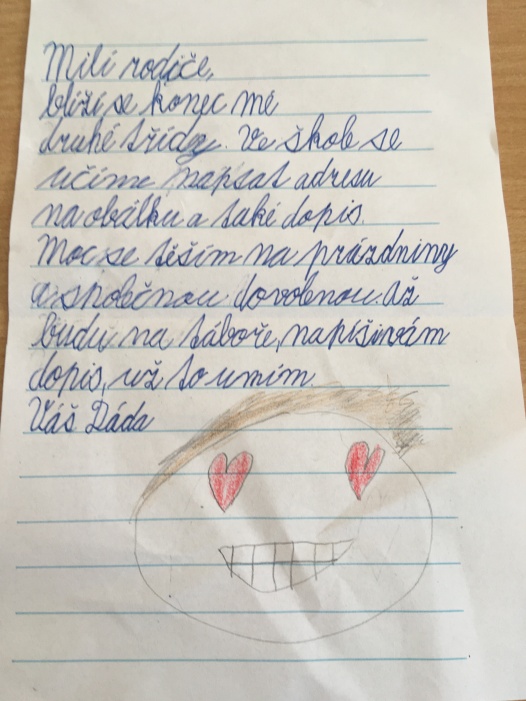 Milí rodiče,
blíží se konec mé
druhé třídy. Ve škole se
učíme napsat adresu
na obálku a také dopis.
Moc se těším na prázdniny
a společnou dovolenou. Až
budu na táboře, napíši vám
dopis, už to umím.
Váš Dáda